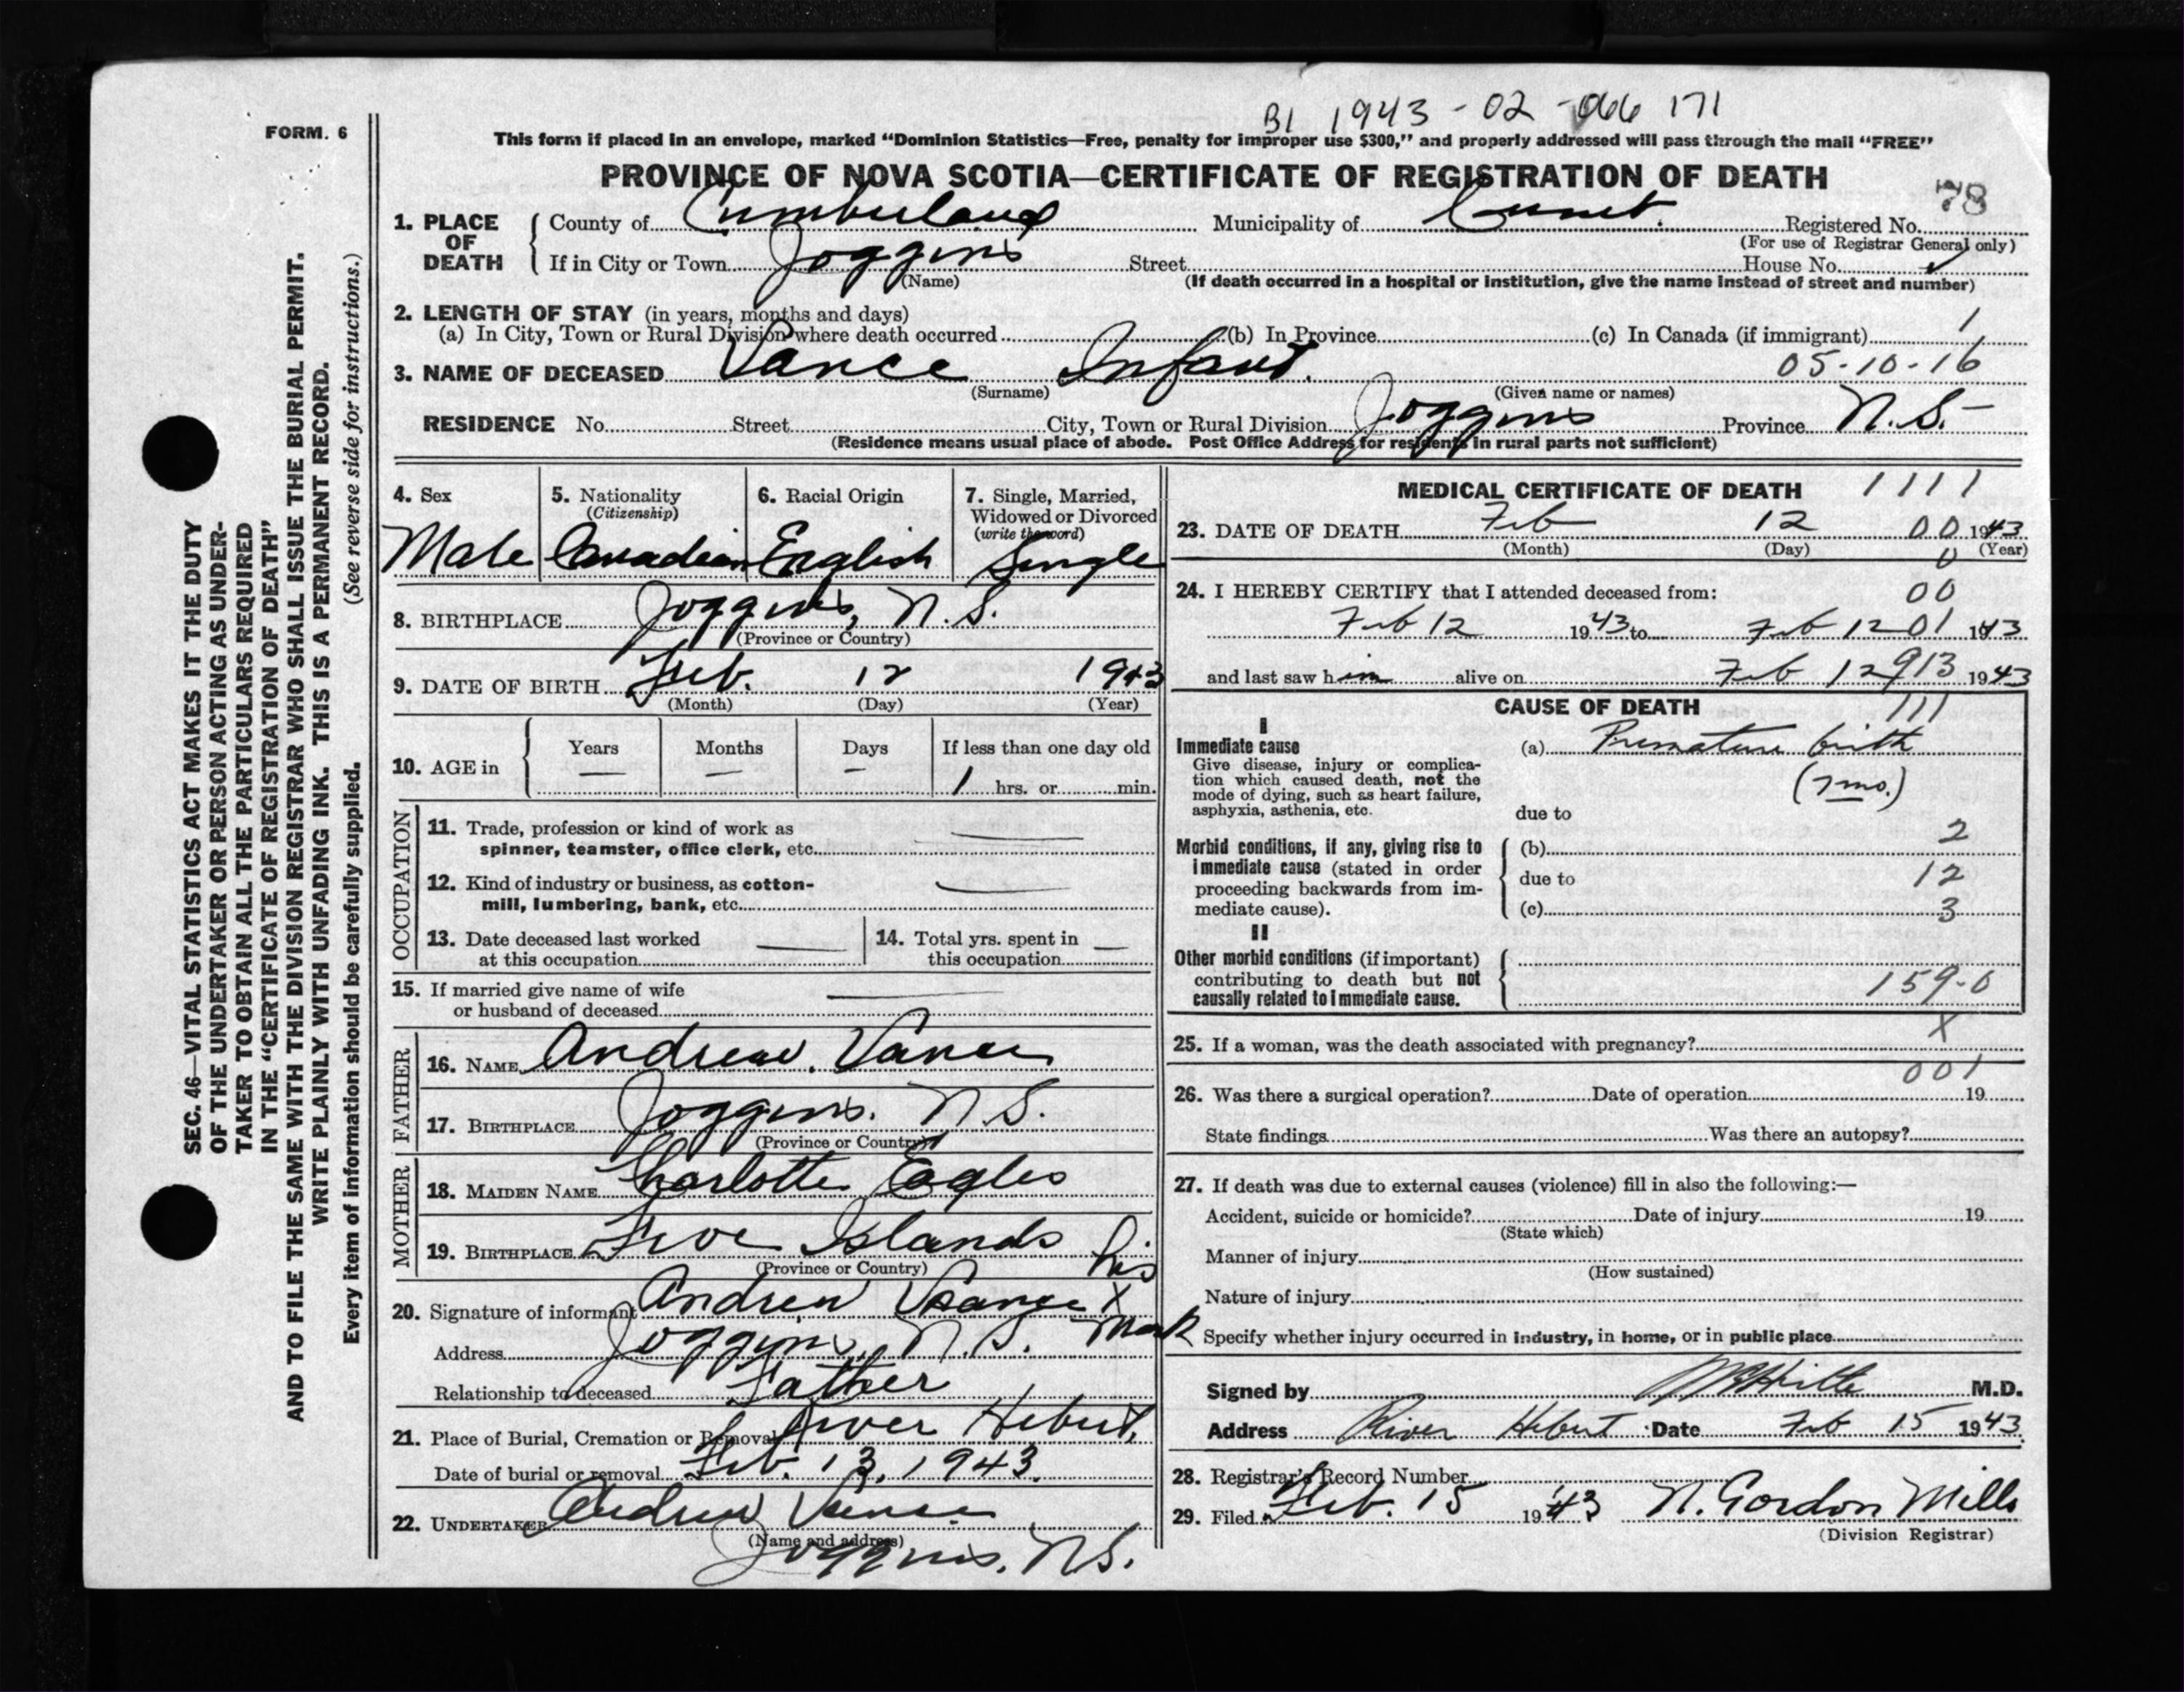 B1 1943-02-066171
FORM. 6
This form if placed in an envelope, marked “Dominion Statistics—Free, penalty for improper use $300,” and properly addressed will pass through the mail “FREE”
PROVINCE OF NOVA SCOTIA—CERTIFICATE OF REGISTRATION OF DEATH
78
1. PLACE OF DEATH County of Cumberland Municipality of Registered No.
(For use of Registrar General only)
If in City or Town Joggins Street House No.
(Name) (If death occurred in a hospital or institution, give the name instead of street and number)
2. LENGTH OF STAY (in years, months and days) 1
(a) In City, Town or Rural Division where death occurred (b) In Province (c) In Canada (if immigrant)
3. NAME OF DECEASED Vance Infant. 05-10-16
(Surname) (Given name or names)
RESIDENCE No. Street City, Town or Rural Division Joggins Province N.S.
(Residence means usual place of abode. Post Office Address for residents in rural parts not sufficient)
SEC. 46—VITAL STATISTICS ACT MAKES IT THE DUTY
OF THE UNDERTAKER OR PERSON ACTING AS UNDER-
TAKER TO OBTAIN ALL THE PARTICULARS REQUIRED
IN THE “CERTIFICATE OF REGISTRATION OF DEATH”
AND TO FILE THE SAME WITH THE DIVISION REGISTRAR WHO SHALL ISSUE THE BURIAL PERMIT.
WRITE PLAINLY WITH UNFADING INK. THIS IS A PERMANENT RECORD.
Every item of information should be carefully supplied. (See reverse side for instructions.)
4. Sex 5. Nationality 6. Racial Origin 7. Single, Married,
(Citizenship) Widowed or Divorced
(write the word)
Male Canadian English Single
8. BIRTHPLACE Joggins, N.S.
(Province or Country)
9. DATE OF BIRTH Feb. 12 1943
(Month) (Day) (Year)
10. AGE in Years Months Days If less than one day old
— — — 1 hrs. or min.
OCCUPATION
11. Trade, profession or kind of work as
spinner, teamster, office clerk, etc.
12. Kind of industry or business, as cotton-
mill, lumbering, bank, etc.
13. Date deceased last worked 14. Total yrs. spent in
at this occupation this occupation
15. If married give name of wife
or husband of deceased
FATHER
16. NAME Andrew Vance
17. BIRTHPLACE Joggins. N.S.
(Province or Country)
MOTHER
18. MAIDEN NAME Charlotte Eagles
19. BIRTHPLACE Five Islands
(Province or Country)
his
20. Signature of informant Andrew Vance X
mark
Address Joggins, N.S.
Relationship to deceased Father
21. Place of Burial, Cremation or Removal River Hebert,
Date of burial or removal Feb. 13, 1943.
22. UNDERTAKER Andrew Vance
(Name and address)
Joggins, N.S.
MEDICAL CERTIFICATE OF DEATH 1111
23. DATE OF DEATH Feb 12 00 1943
(Month) (Day) (Year)
0
24. I HEREBY CERTIFY that I attended deceased from: 00
Feb 12 1943 to Feb 12 01 1943
and last saw him alive on Feb 12 913 1943
CAUSE OF DEATH 111
I
Immediate cause (a) Premature birth
Give disease, injury or complica-
tion which caused death, not the (7 mo.)
mode of dying, such as heart failure,
asphyxia, asthenia, etc. due to
2
Morbid conditions, if any, giving rise to (b)
immediate cause (stated in order due to 12
proceeding backwards from im-
mediate cause). (c) 3
II
Other morbid conditions (if important)
contributing to death but not
causally related to immediate cause. 159-0
X
25. If a woman, was the death associated with pregnancy?
001
26. Was there a surgical operation? Date of operation 19
State findings Was there an autopsy?
27. If death was due to external causes (violence) fill in also the following:—
Accident, suicide or homicide? Date of injury 19
(State which)
Manner of injury
(How sustained)
Nature of injury
Specify whether injury occurred in industry, in home, or in public place
Signed by M.D.
Address River Hebert Date Feb 15 1943
28. Registrar's Record Number
29. Filed Feb. 15 1943 N. Gordon Mills
(Division Registrar)